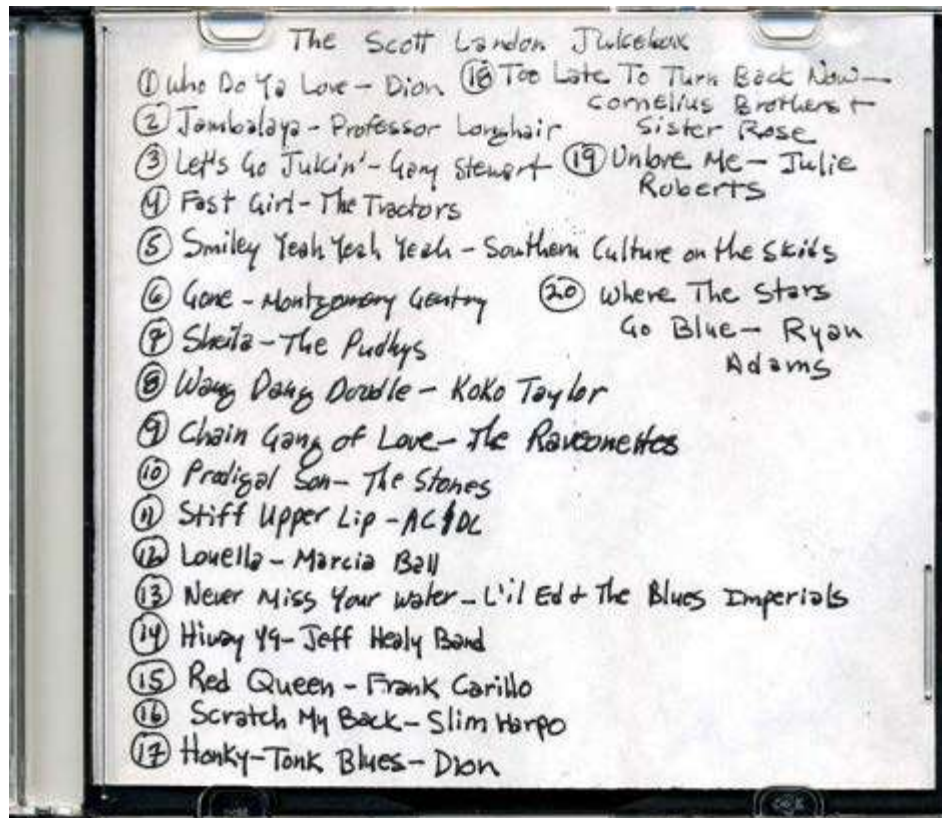 The Scott Landon Jukebox
① Who Do Ya Love – Dion
② Jambalaya – Professor Longhair
③ Let's Go Jukin' – Gary Stewart
④ Fast Girl – The Tractors
⑤ Smiley Yeah Yeah Yeah – Southern Culture on the Skids
⑥ Gone – Montgomery Gentry
⑦ Sheila – The Pudhys
⑧ Wang Dang Doodle – Koko Taylor
⑨ Chain Gang of Love – The Raveonettes
⑩ Prodigal Son – The Stones
⑪ Stiff Upper Lip – AC/DC
⑫ Louella – Marcia Ball
⑬ Never Miss Your Water – L'il Ed & The Blues Imperials
⑭ Hiway 49 – Jeff Healy Band
⑮ Red Queen – Frank Carillo
⑯ Scratch My Back – Slim Harpo
⑰ Honky-Tonk Blues – Dion
⑱ Too Late To Turn Back Now –
Cornelius Brothers +
Sister Rose
⑲ Unlove Me – Julie
Roberts
⑳ Where The Stars
Go Blue – Ryan
Adams